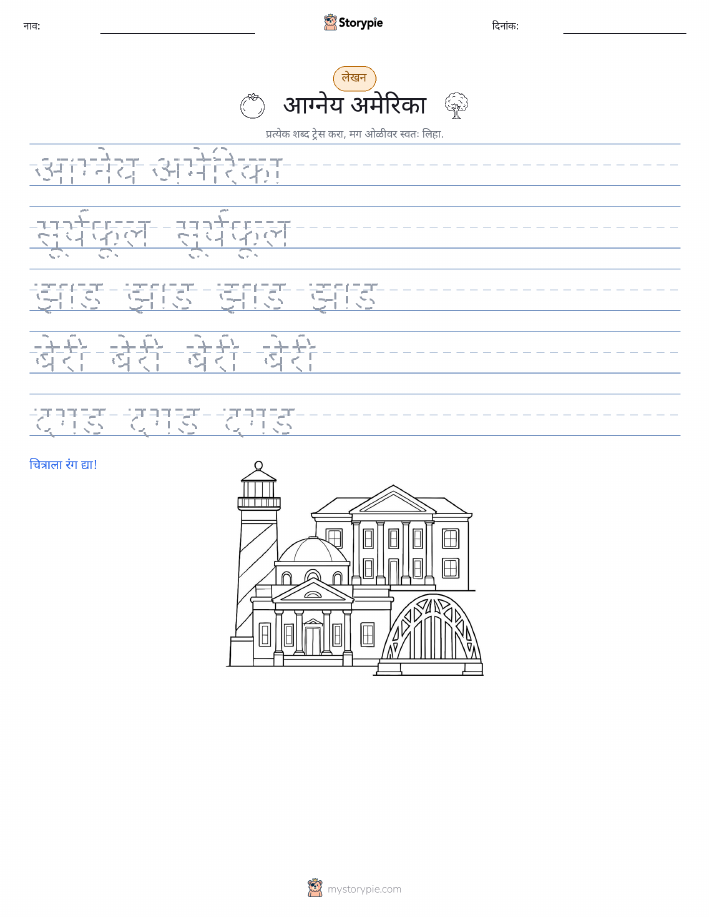 नाव: Storypie दिनांक:
लेखन
आग्नेय अमेरिका
प्रत्येक शब्द ट्रेस करा, मग ओळीवर स्वतः लिहा.
आग्नेय अमेरिका
सूर्यफूल सूर्यफूल
झाड झाड झाड झाड
बेरी बेरी बेरी बेरी
दगड दगड दगड
चित्राला रंग द्या!
mystorypie.com